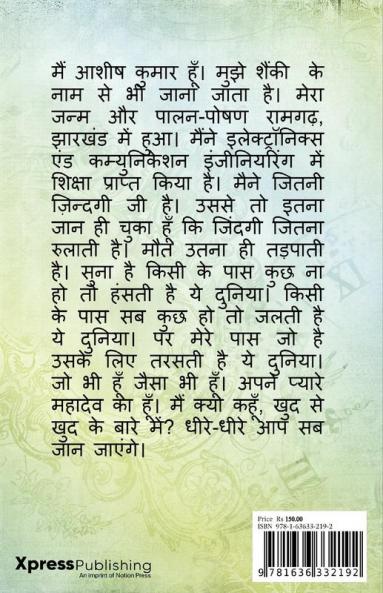 मैं आशीष कुमार हूँ। मुझे शैंकी के
नाम से भी जाना जाता है। मेरा
जन्म और पालन-पोषण रामगढ़,
झारखंड में हुआ। मैंने इलेक्ट्रॉनिक्स
एंड कम्युनिकेशन इंजीनियरिंग में
शिक्षा प्राप्त किया है। मैने जितनी
ज़िन्दगी जी है। उससे तो इतना
जान ही चुका हूँ कि जिंदगी जितना
रुलाती है। मौत उतना ही तड़पाती
है। सुना है किसी के पास कुछ ना
हो तो हंसती है ये दुनिया। किसी
के पास सब कुछ हो तो जलती है
ये दुनिया। पर मेरे पास जो है
उसके लिए तरसती है ये दुनिया।
जो भी हूँ जैसा भी हूँ। अपने प्यारे
महादेव का हूँ। मैं क्या कहूँ, खुद से
खुद के बारे में? धीरे-धीरे आप सब
जान जाएंगे।
Price Rs 150.00
ISBN 978-1-63633-219-2
XpressPublishing
An Imprint of Notion Press
9 781636 332192